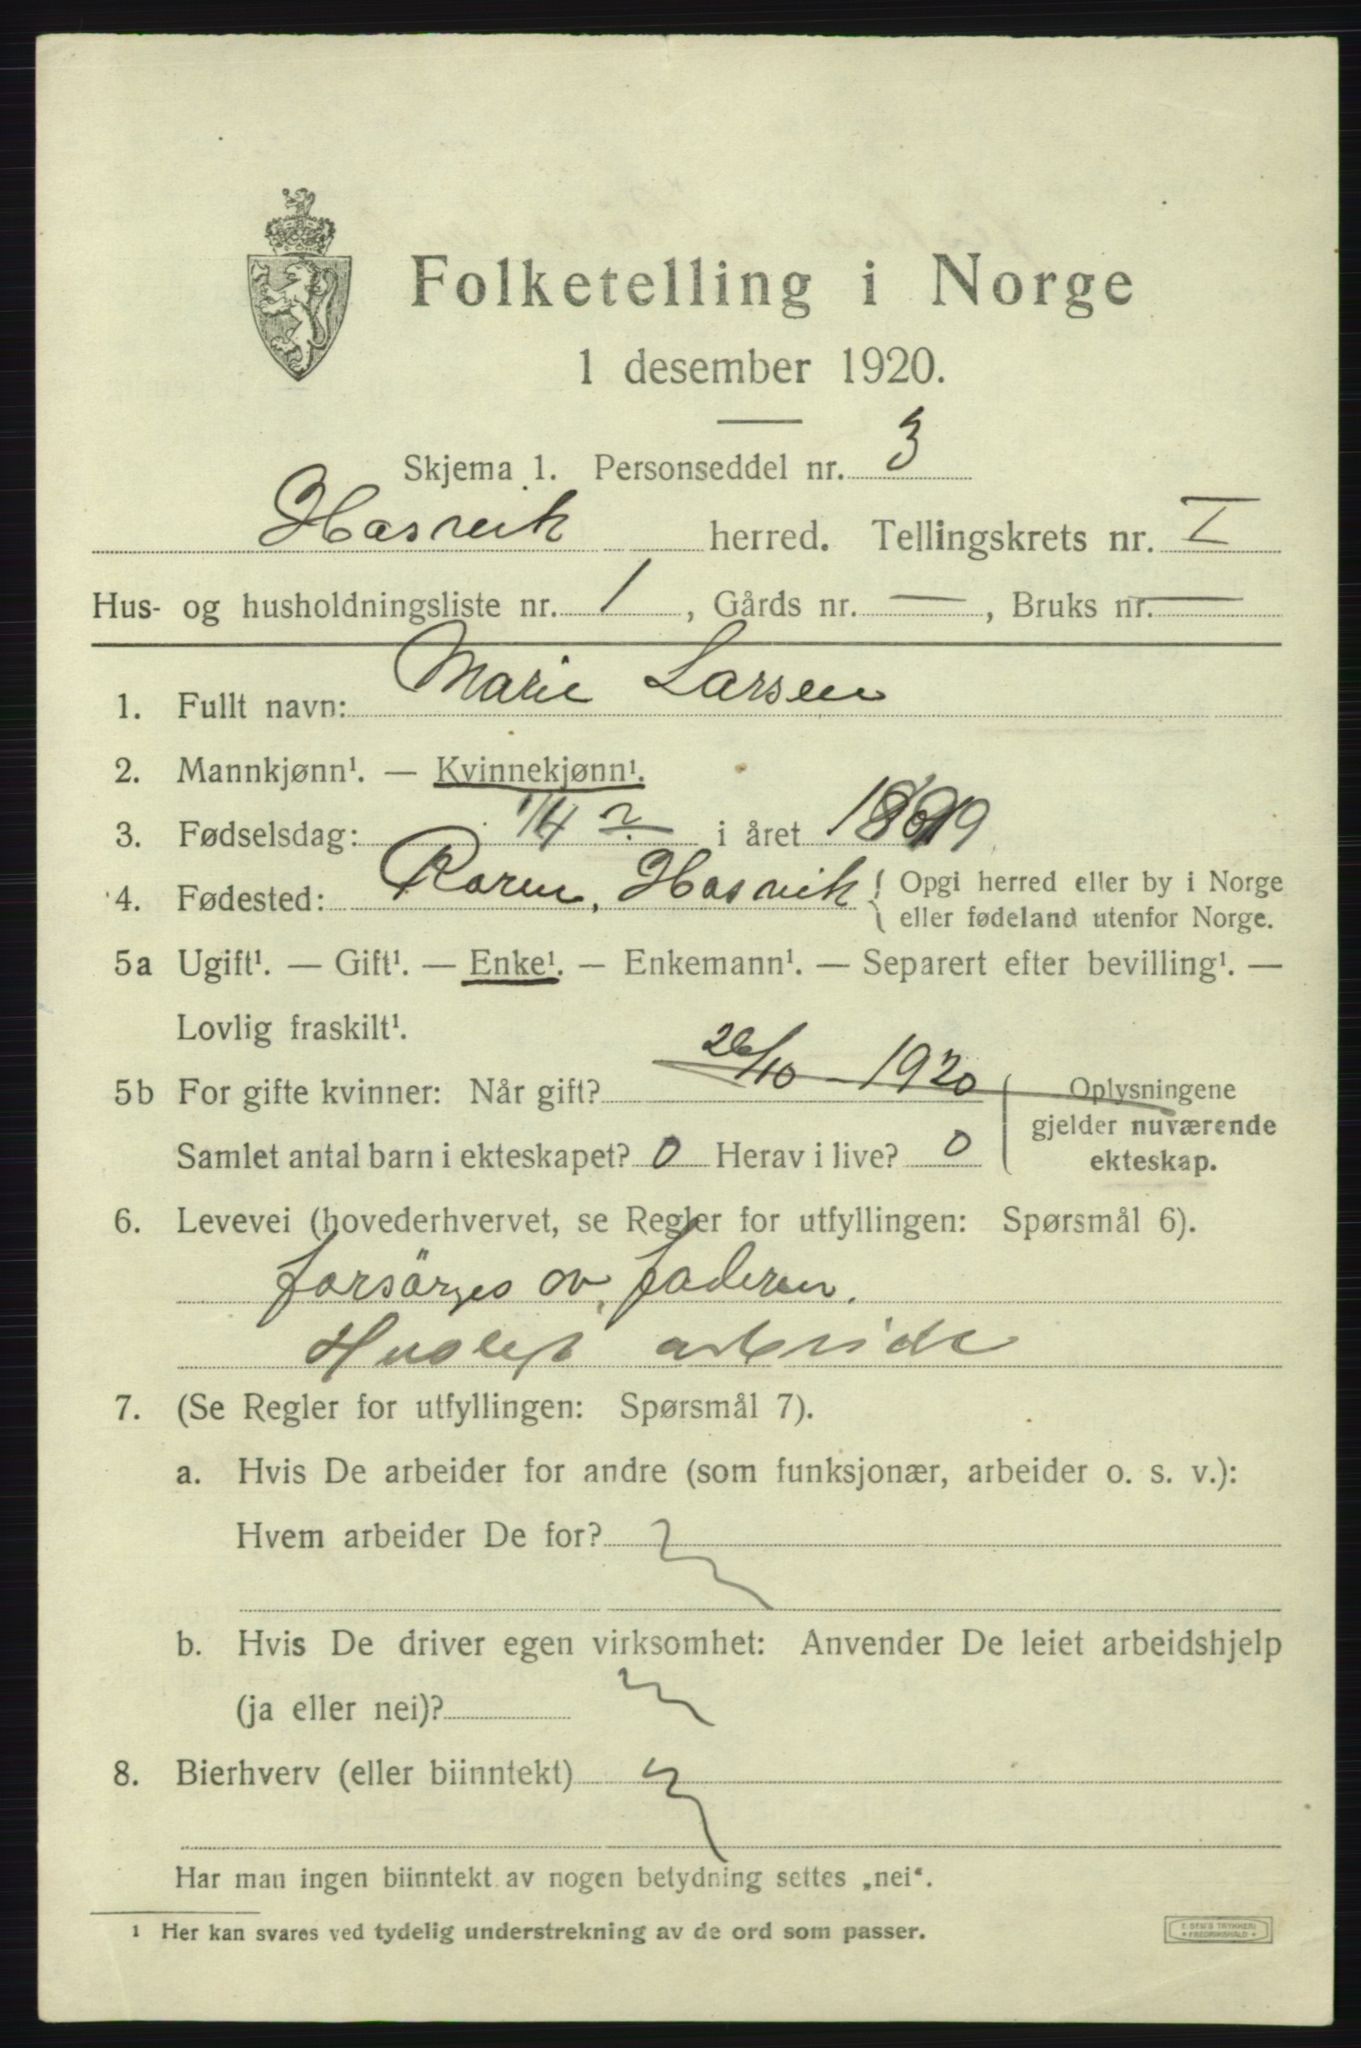 Folketelling i Norge
1 desember 1920.
Skjema 1. Personseddel nr. 3
Hasvik herred. Tellingskrets nr. I
Hus- og husholdningsliste nr. 1, Gårds nr. —, Bruks nr. —
1. Fullt navn: Marie Larsen
2. Mannkjønn¹. — Kvinnekjønn¹.
3. Fødselsdag: 14 ? i året
4. Fødested: Hasvik { Opgi herred eller by i Norge
eller fødeland utenfor Norge.
5a Ugift¹. — Gift¹. — Enke¹. — Enkemann¹. — Separert efter bevilling¹. —
Lovlig fraskilt¹.
5b For gifte kvinner: Når gift? 26/10 - 1920 ( Oplysningene
gjelder nuværende
ekteskap.
Samlet antal barn i ekteskapet? 0 Herav i live? 0
6. Levevei (hovederhvervet, se Regler for utfyllingen: Spørsmål 6).
forsörges av faderen.
Huslig arbeide
7. (Se Regler for utfyllingen: Spørsmål 7).
a. Hvis De arbeider for andre (som funksjonær, arbeider o. s. v.):
Hvem arbeider De for?
b. Hvis De driver egen virksomhet: Anvender De leiet arbeidshjelp
(ja eller nei)?
8. Bierhverv (eller biinntekt)
Har man ingen biinntekt av nogen betydning settes „nei“.
¹ Her kan svares ved tydelig understrekning av de ord som passer.
E. SEM'S TRYKKERI
FREDRIKSHALD